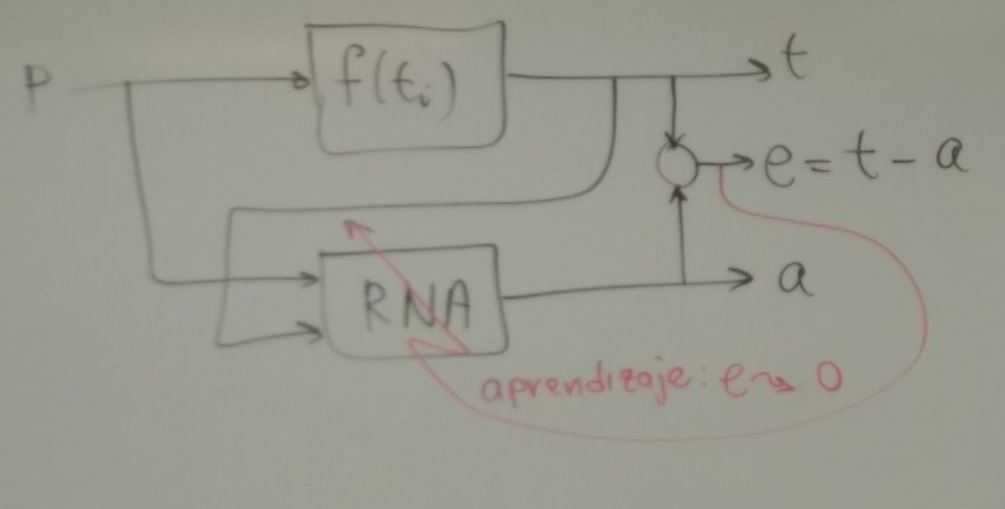 P
f(tᵢ)
t
e = t - a
RNA
a
aprendizaje: e ↝ 0